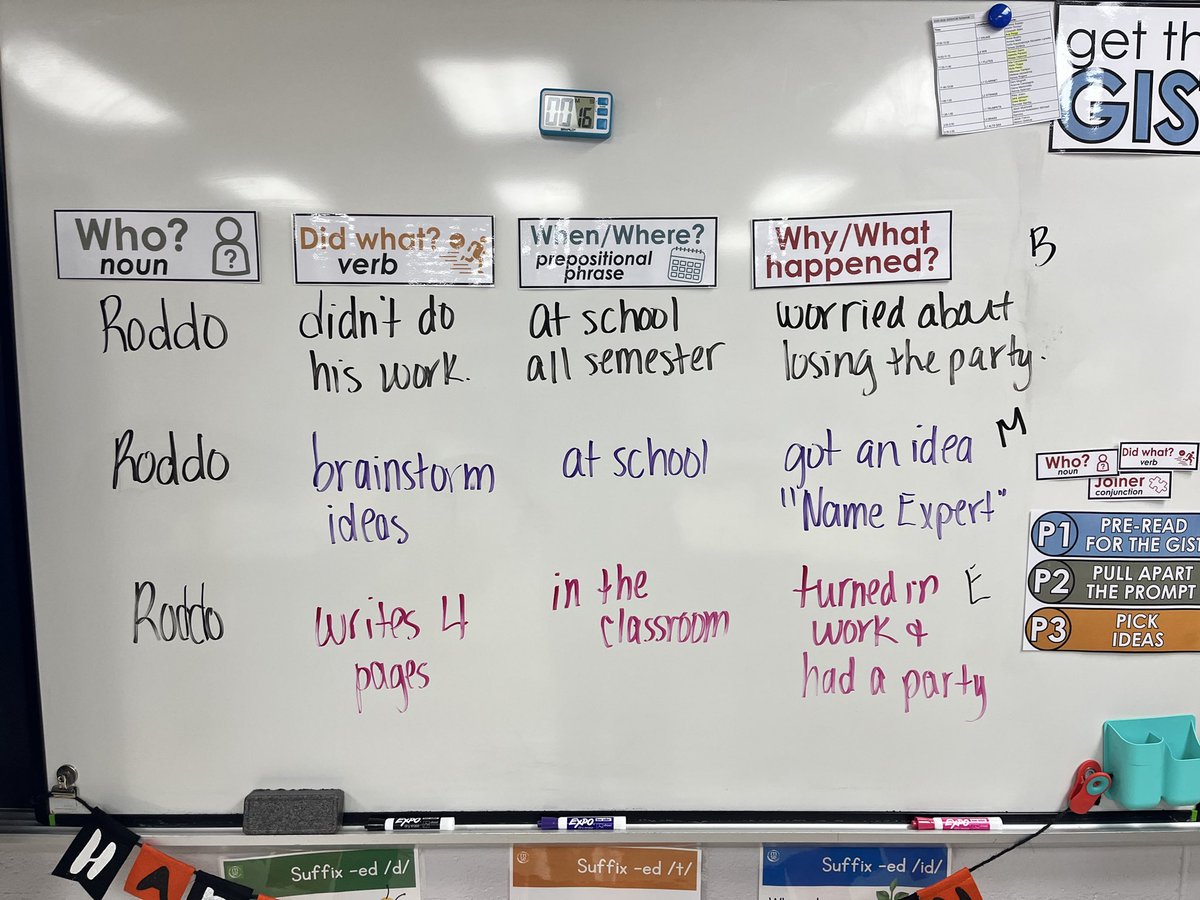 get th
GIS
00 16
Who?
noun
Did what?
verb
When/Where?
prepositional
phrase
Why/What
happened?
B
Roddo
didn't do
his work.
at school
all semester
worried about
losing the party.
Roddo
brainstorm
ideas
at school
got an idea
"Name Expert"
M
Roddo
writes 4
pages
in the
classroom
turned in
work &
had a party
E
Who?
noun
Did what?
verb
Joiner
conjunction
P1 PRE-READ
FOR THE GIST
P2 PULL APART
THE PROMPT
P3 PICK
IDEAS
EXPO
EXPO
EXPO
H
A
Suffix -ed /d/
Suffix -ed /t/
Suffix -ed /id/